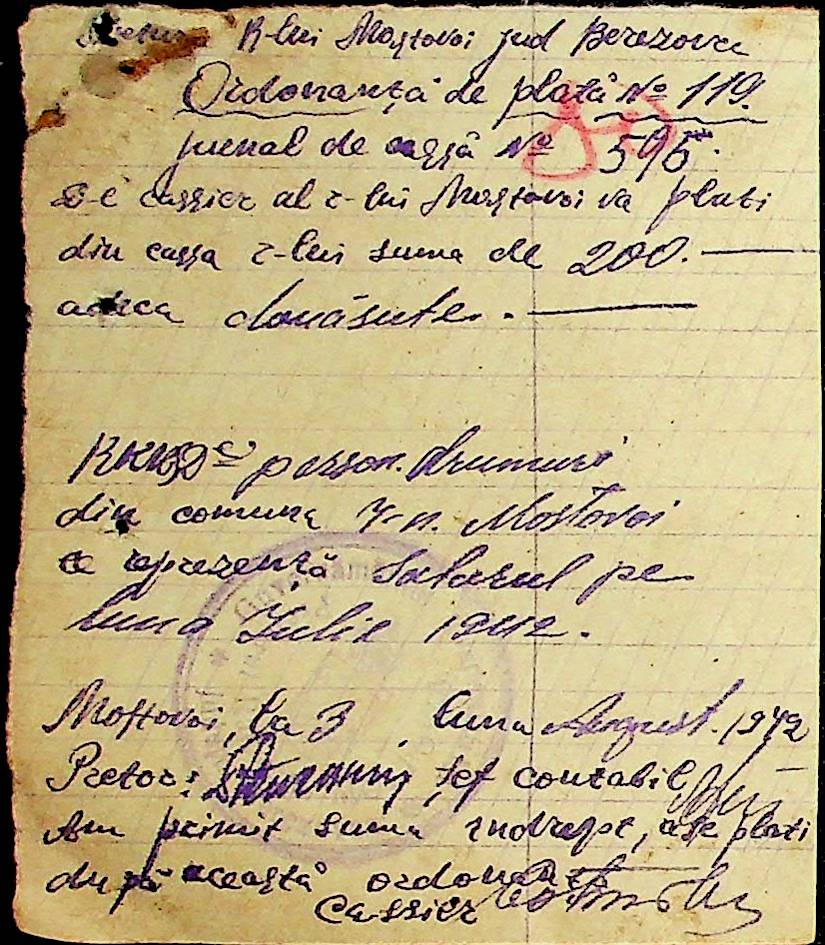 R-lui Mostovoi jud Berezovca
Ordonanță de plată No 119.
jurnal de cassă No 595.
D-l cassier al r-lui Mostovoi va plati
din cassa r-lui suma de 200.—
adeca douăsute.—
person. drumuri
din comuna Mostovoi
ce reprezență Salarul pe
luna Iulie 1942.
Mostovoi, la 3 luna August. 1942
Pretor: Șef contabil
Am primit suma indrept, a se plati
după aceastâ ordonanță
Cassier